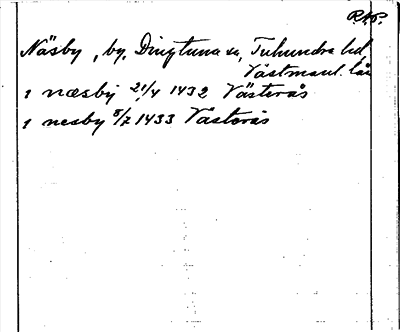 R.A.P.
Näsby, by, Dingtuna sn, Tuhundra hd
Västmanl. län
i næsby 21/4 1432 Västerås
i nesby 8/7 1433 Västerås